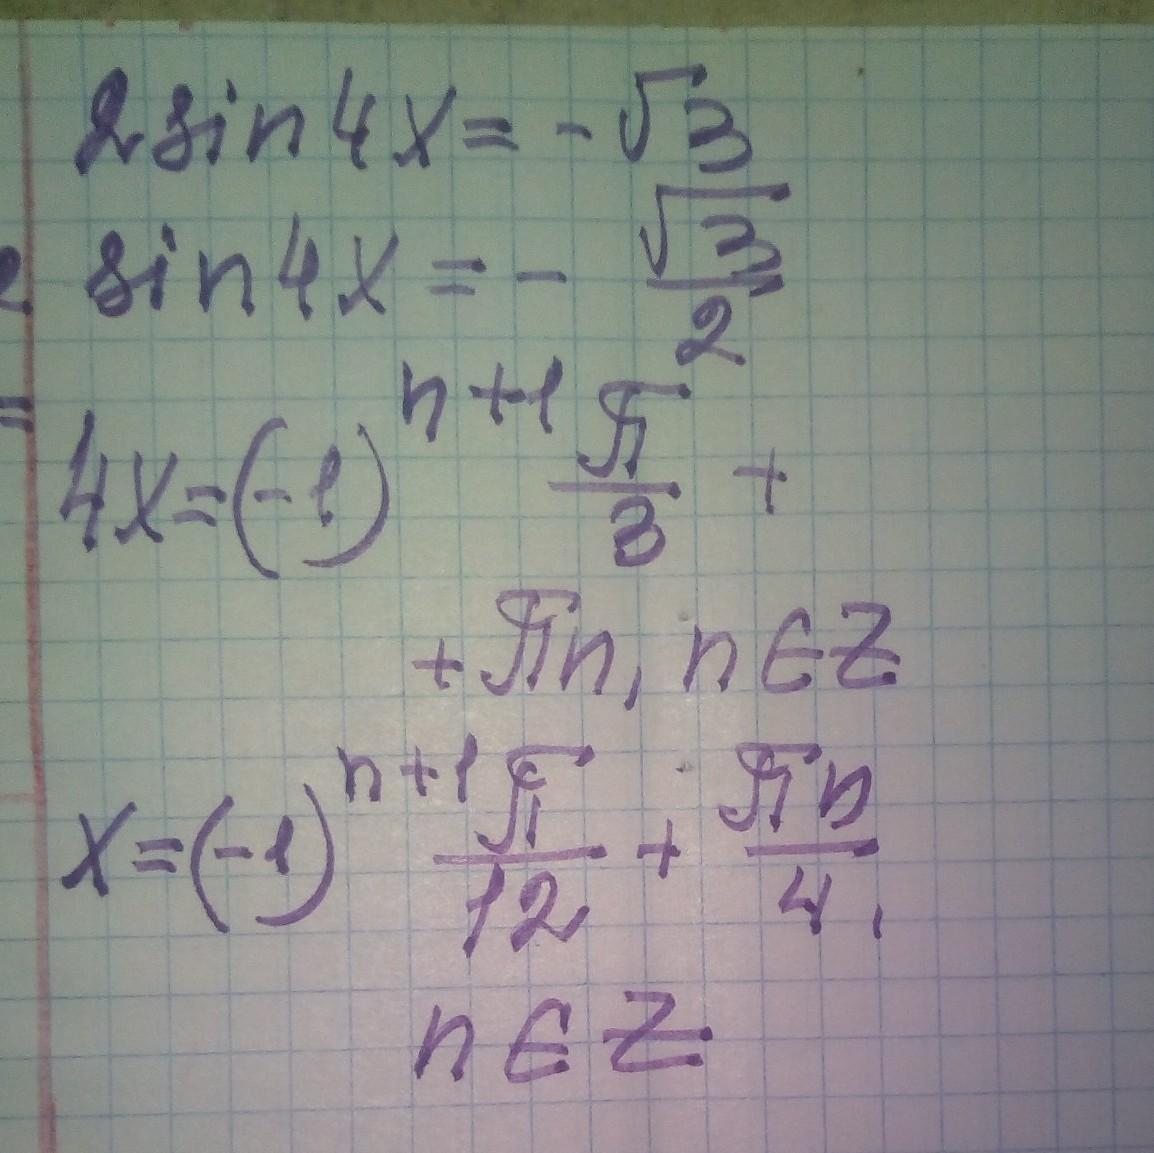 2sin4x = -√3
sin4x = - √3/2
4x = (-1)^(n+1) π/3 +
+ πn, n∈Z
x = (-1)^(n+1) π/12 + πn/4,
n∈Z